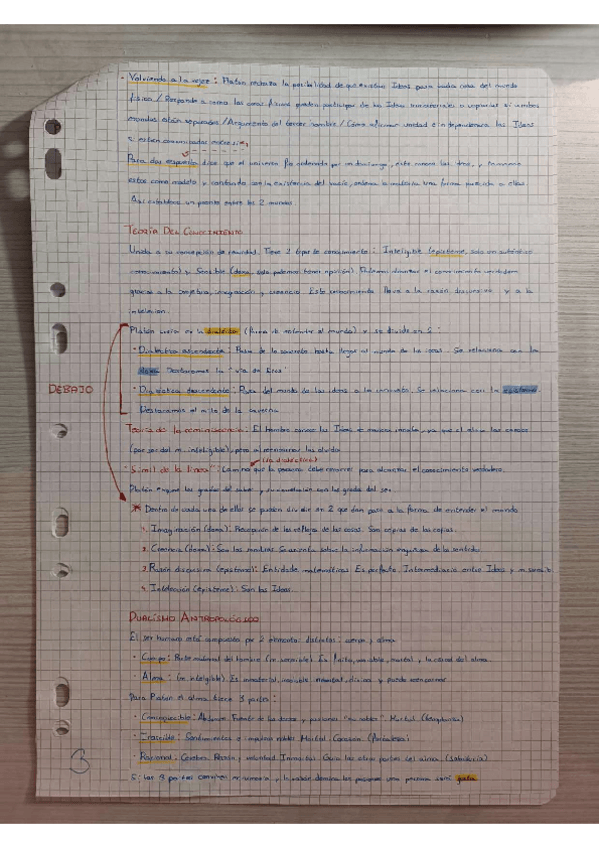 · Volviendo a la : Platón rechaza la posibilidad de que existan Ideas para cada cosa del mundo
físico / Responde a como las cosas físicas pueden participar de las Ideas si ambos
mundos están separados / Argumento del tercer hombre / Cómo afirmar unidad e independencia las Ideas
si están comunicadas entre sí
Para dar respuesta dice que el universo fue ordenado por un demiurgo, este
estas como modelo y contando con la existencia del ordena la materia una forma parecida a ellas
Así establece un puente entre los 2 mundos.
TEORÍA DEL CONOCIMIENTO
Unida a su concepción de realidad. Tiene 2 tipos de conocimiento : Inteligible (episteme, solo un auténtico
conocimiento) y Sensible (doxa, solo podemos tener opinión) el conocimiento verdadero
gracias a la , imaginación y creencia. Este conocimiento lleva a la razón discursiva y a la
intelección.
Platón en la dialéctica (forma de entender al mundo) y se divide en 2 :
· Dialéctica ascendente : Pasa de lo concreto hasta llegar al mundo de las ideas. Se relaciona con la
doxa. Destacamos la "vía de Eros"
DEBAJO
· Dialéctica descendente : Pasa del mundo de las ideas a lo concreto. Se relaciona con la episteme.
Destacamos el mito de la caverna
Teoría de la reminiscencia : El hombre conoce las Ideas de manera innata, ya que el alma las conoce
(por ser del m. inteligible), pero al reencarnar las olvida.
(la dialéctica)
· Símil de la línea : Camino que la persona debe recorrer para alcanzar el conocimiento verdadero.
Platón los grados del saber y su con los grados del ser.
Dentro de cada una de ellas se pueden dividir en 2 que dan paso a la forma de entender el mundo
1. Imaginación (doxa): Percepción de los reflejos de las cosas. Son copias de las copias.
2. Creencia (doxa): Son las sombras. Se asienta sobre la información de los sentidos
3. Razón discursiva (episteme): Entidades matemáticas. Es perfecto. Intermediario entre Ideas y m. sensible
4. Intelección (episteme): Son las Ideas.
DUALISMO ANTROPOLÓGICO
El ser humano está compuesto por 2 elementos distintos : cuerpo y alma
· Cuerpo : Parte material del hombre (m. sensible). Es finito, mutable, mortal y la cárcel del alma.
· Alma : (m. inteligible). Es inmaterial, invisible, inmortal, divina y puede reencarnar.
Para Platón el alma tiene 3 partes :
· Concupiscible : Abdomen. Fuente de los deseos y pasiones "no nobles" Mortal (Templanza)
· Irascible : Sentimientos e impulsos nobles Mortal. Corazón (Fortaleza)
· Racional : Cerebro. Razón y voluntad. Inmortal. Guía las otras partes del alma. (sabiduría)
Si las 3 partes en armonía y la razón domina las pasiones una persona será justa
3